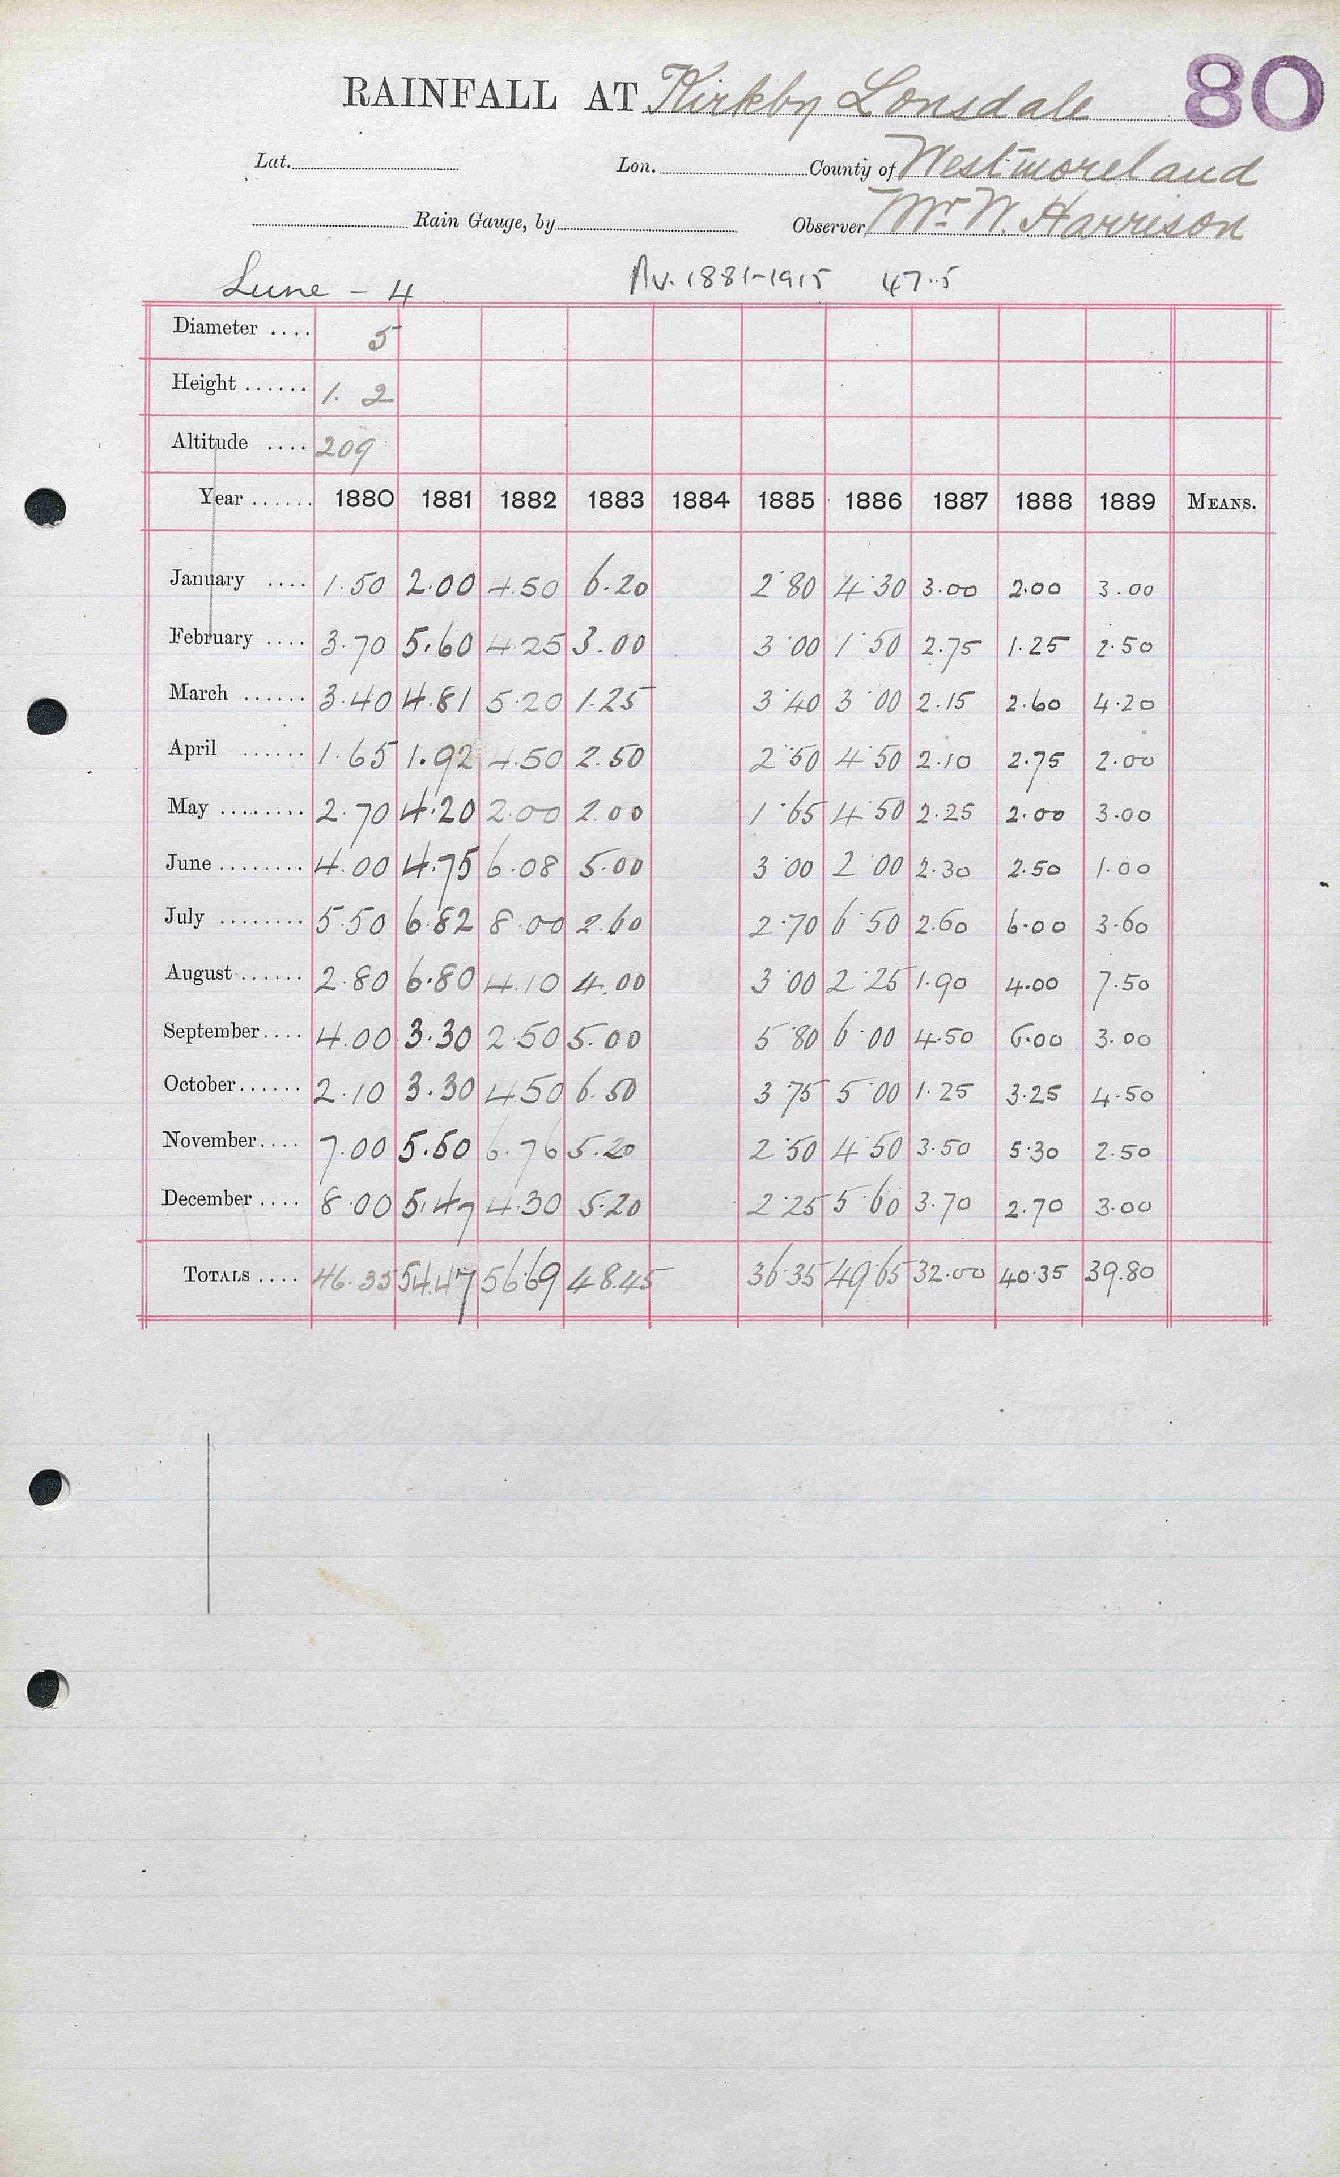 80
RAINFALL AT Kirkby Lonsdale
Lat. Lon. County of Westmoreland
Rain Gauge, by Observer Mr W. Harrison
Lune - 4 Av. 1881-1915 47.5
Diameter .... 5
Height ...... 1. 2
Altitude .... 209
Year ...... 1880 1881 1882 1883 1884 1885 1886 1887 1888 1889 MEANS.
January .... 1.50 2.00 4.50 6.20 2.80 4.30 3.00 2.00 3.00
February .... 3.70 5.60 4.25 3.00 3.00 1.50 2.75 1.25 2.50
March ...... 3.40 4.81 5.20 1.25 3.40 3.00 2.15 2.60 4.20
April ...... 1.65 1.92 4.50 2.50 2.50 4.50 2.10 2.75 2.00
May ........ 2.70 4.20 2.00 2.00 1.65 4.50 2.25 2.00 3.00
June ........ 4.00 4.75 6.08 5.00 3.00 2.00 2.30 2.50 1.00
July ........ 5.50 6.82 8.00 2.60 2.70 6.50 2.60 6.00 3.60
August ...... 2.80 6.80 4.10 4.00 3.00 2.25 1.90 4.00 7.50
September .... 4.00 3.30 2.50 5.00 5.80 6.00 4.50 6.00 3.00
October ...... 2.10 3.30 4.50 6.50 3.75 5.00 1.25 3.25 4.50
November .... 7.00 5.50 6.76 5.20 2.50 4.50 3.50 5.30 2.50
December .... 8.00 5.47 4.30 5.20 2.25 5.60 3.70 2.70 3.00
TOTALS .... 46.35 54.47 56.69 48.45 36.35 49.65 32.00 40.35 39.80